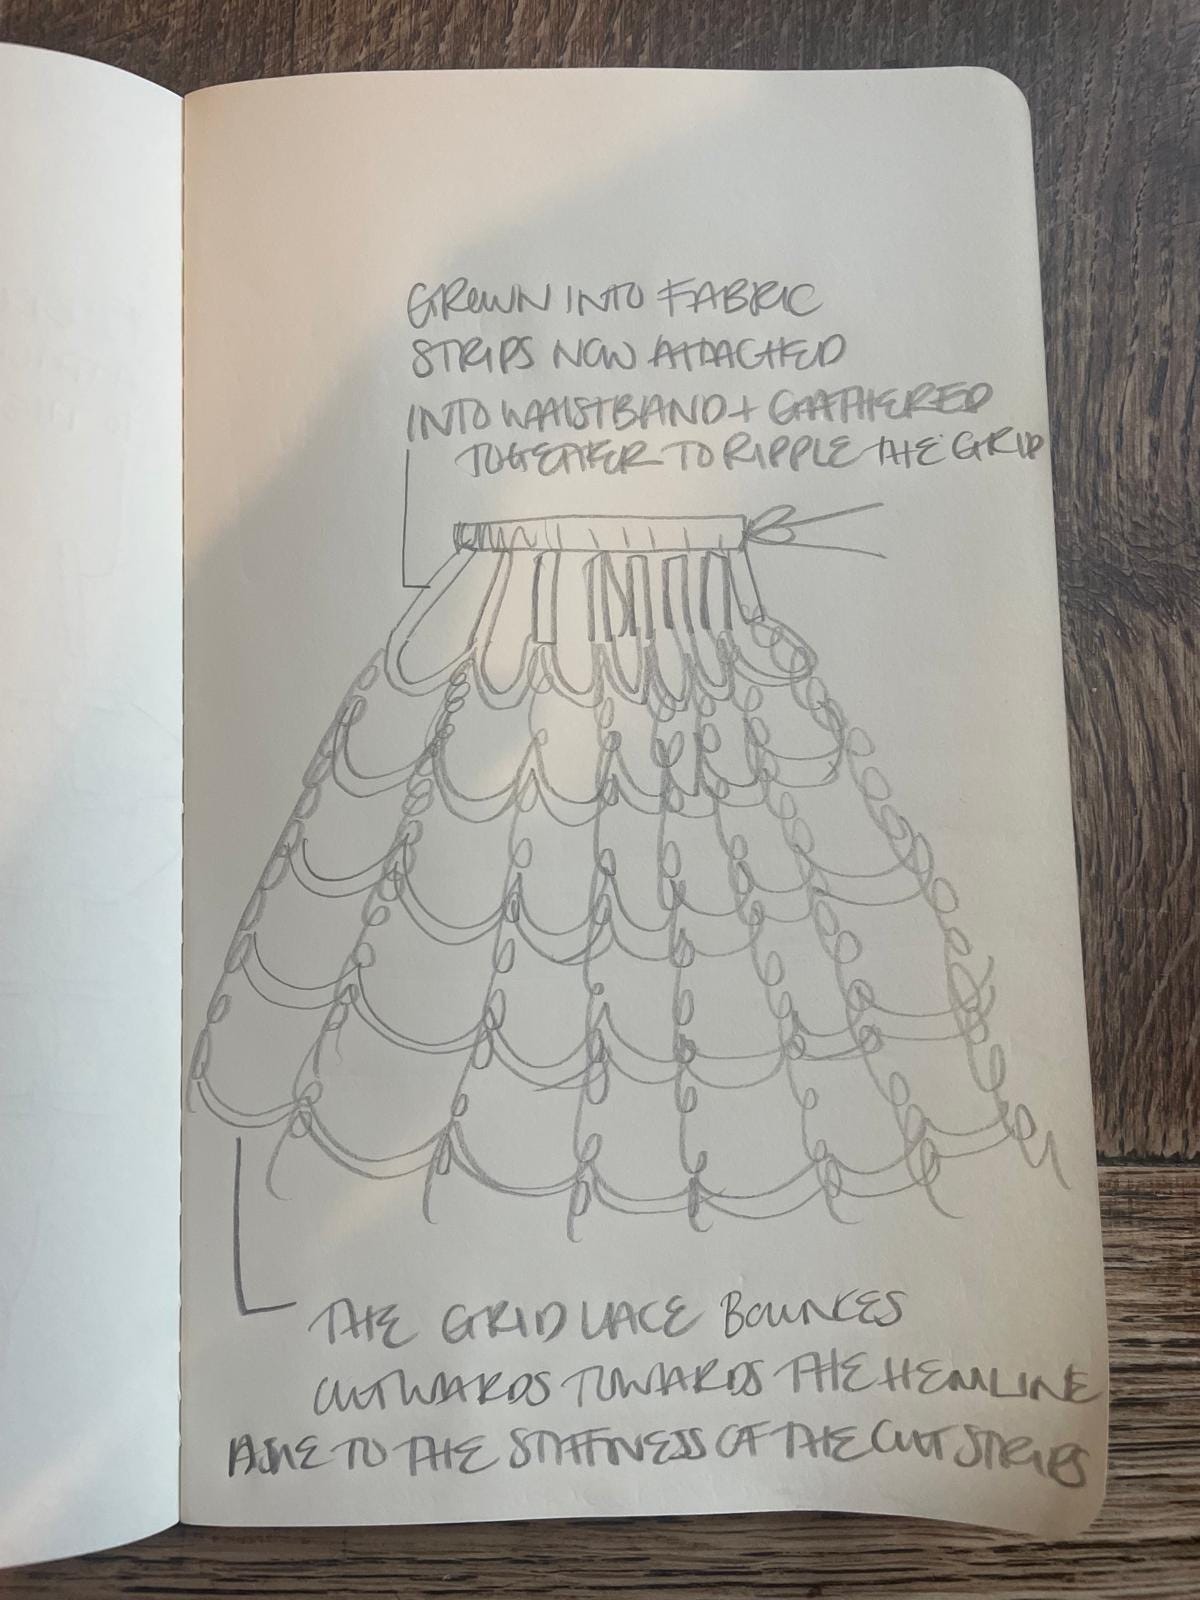 GROWN INTO FABRIC
STRIPS NOW ATTACHED
INTO WAISTBAND + GATHERED
TOGETHER TO RIPPLE THE GRID
THE GRID LACE BOUNCES
OUTWARDS TOWARDS THE HEMLINE
TO THE STIFFNESS OF THE CUT STRIPS